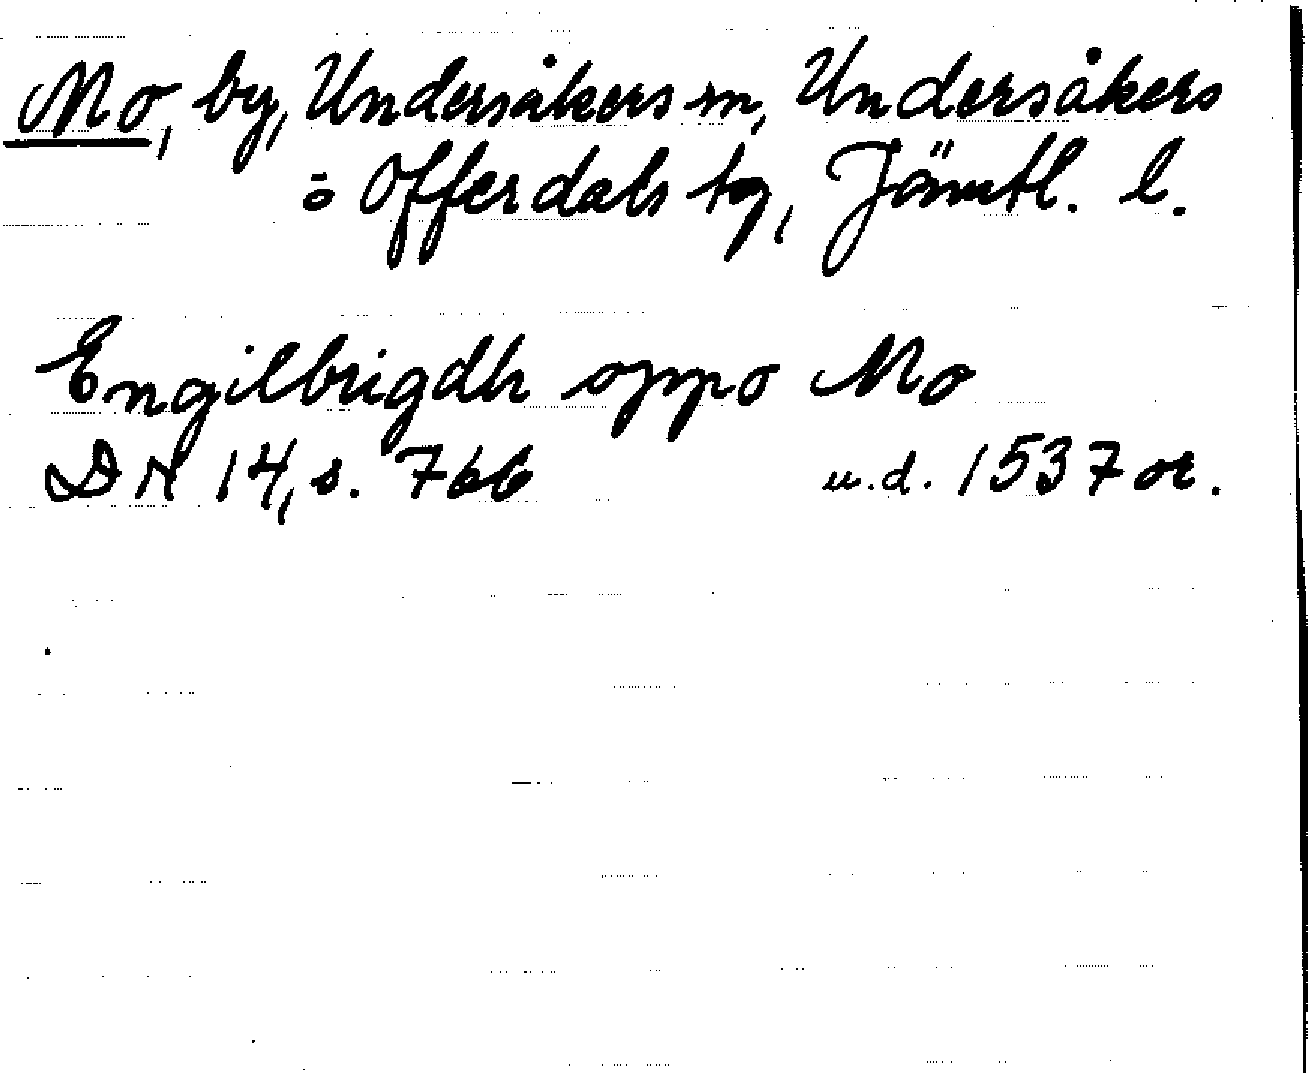 Mo, by, Undersåkers sn, Undersåkers
o Offerdals tg, Jämtl. l.
Engilbrigdh oppo Mo
DN 14, s. 766 u.d. 1537 or.